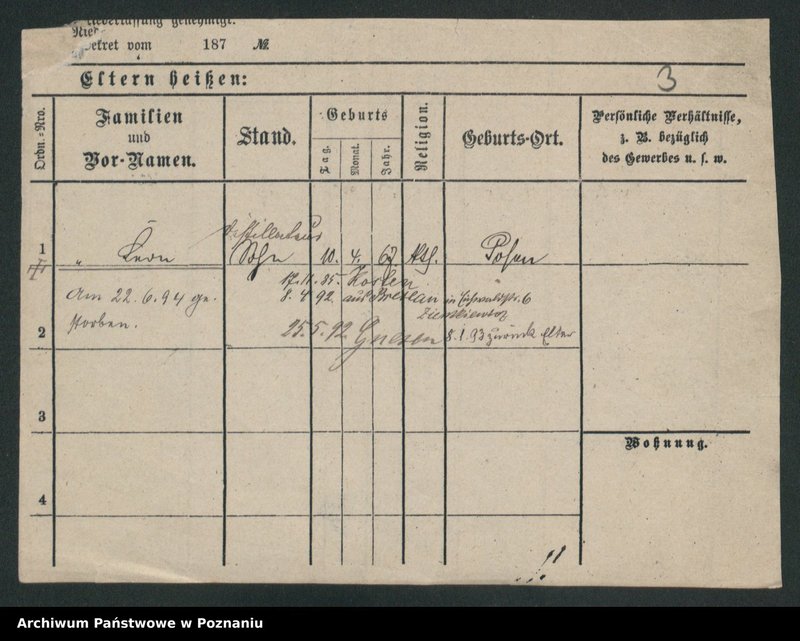 Niederlassung genehmigt.
Dekret vom 187 №.
Eltern heißen:
3
Ordn.-Nro.
Familien
und
Vor-Namen.
Stand.
Geburts
Tag.
Monat.
Jahr.
Religion.
Geburts-Ort.
Persönliche Verhältnisse,
z. B. bezüglich
des Gewerbes u. s. w.
Destillateur
1
" Leon Sohn 10. 4. 67 kth. Posen
17.11.85. Kosten
Am 22.6.94 ge-
8.4.92 aus Breslau in
storben.
2
25.5.92 Gnesen 8.1.93 zurück Elter
3
Wohnung.
4
Archiwum Państwowe w Poznaniu